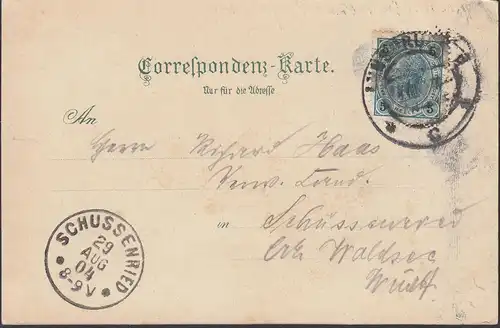 Correspondenz-Karte.
Nur für die Adresse
5 5
An
Herrn Richard Haas
Verw. Cand.
in Schussenried
O/A Waldsee
Württ
SCHUSSENRIED
29
AUG
04
8-9V